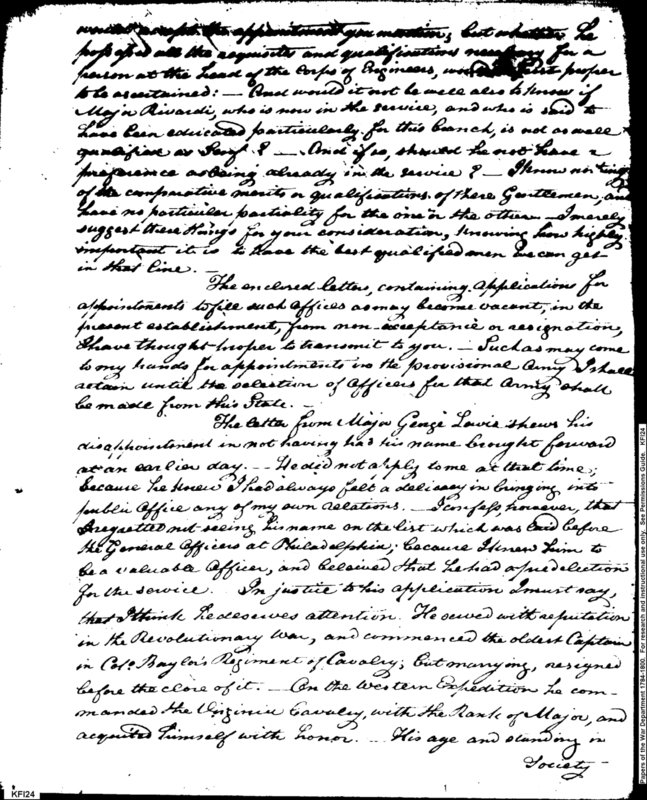 would accept the appointment you mention; but whether he
possesses all the requisites and qualifications necessary for a
person at the head of the Corps of Engineers, would first proper
to be ascertained: — And would it not be well also to know if
Major Rivardi, who is now in the service, and who is said to
have been educated particularly for this branch, is not as well
qualified as Senf? — And if so, should he not have a
preference as being already in the service? — I know nothing
of the comparative merits or qualifications of these Gentlemen, and
have no particular partiality for the one or the other — I merely
suggest these things for your consideration, knowing how highly
important it is to have the best qualified men we can get
in that line. —
The enclosed letters, containing applications for
appointments to fill such Offices as may become vacant, in the
present establishment, from non-acceptance or resignation,
I have thought proper to transmit to you. — Such as may come
to my hands for appointments in the provisional Army I shall
retain until the selection of Officers for that Army shall
be made from this State. —
The letter from Major George Lewis shews his
disappointment in not having had his name brought forward
at an earlier day. — He did not apply to me at that time;
because he knew I had always felt a delicacy in bringing into
public Office any of my own relations. — I confess, however, that
I regretted not seeing his name on the list which was laid before
the General Officers at Philadelphia; because I knew him to
be a valuable Officer, and believed that he had a predilection
for the service. In justice to his application I must say,
that I think he deserves attention. He served with reputation
in the Revolutionary War, and commenced the oldest Captain
in Colo. Baylor's Regiment of Cavalry; but marrying, resigned
before the close of it. — On the Western Expedition he com-
manded the Virginia Cavalry, with the Rank of Major, and
acquitted himself with honor. — His age and standing in
Society
Papers of the War Department 1784-1800. For research and instructional use only. See Permissions Guide. KFI24
KFI24